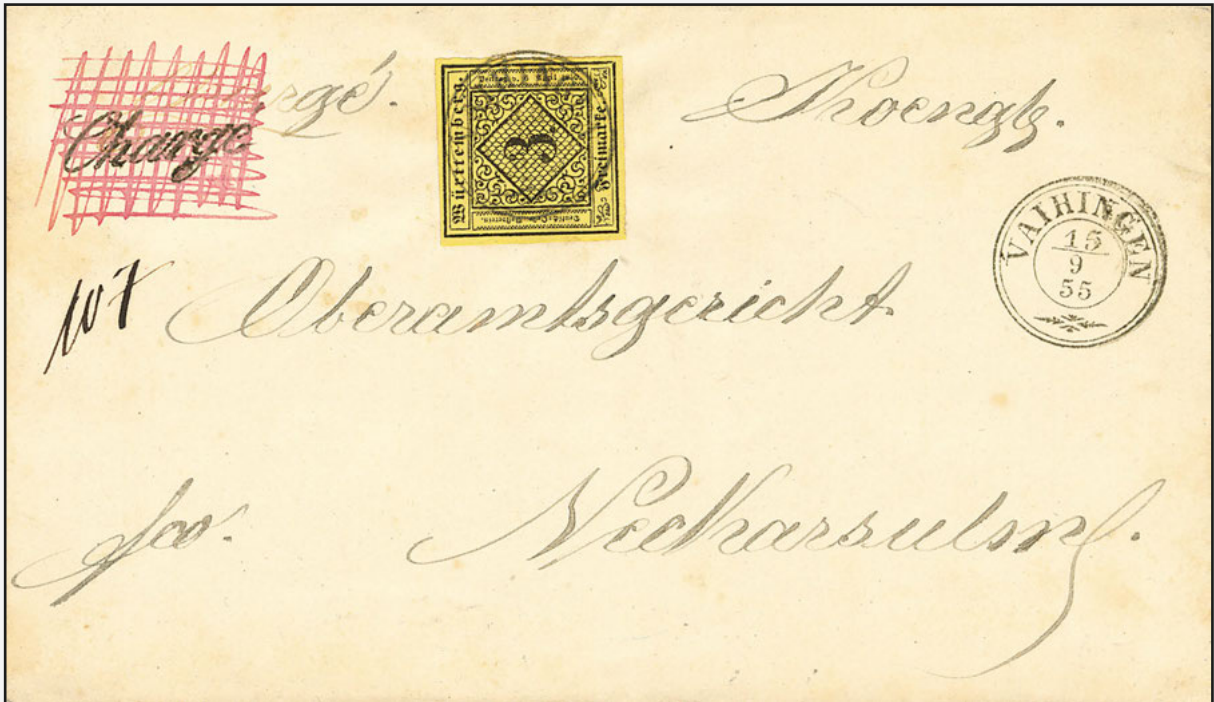 Chargé. Koengl.
Charge
Württemberg.
3
Freimarke
VAIHINGEN
15
9
55
107
Oberamtsgericht
fco. Neckarsulm.